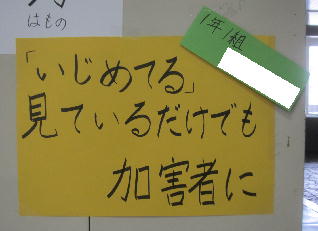 はもの
1年1組
「いじめてる」
見ているだけでも
加害者に